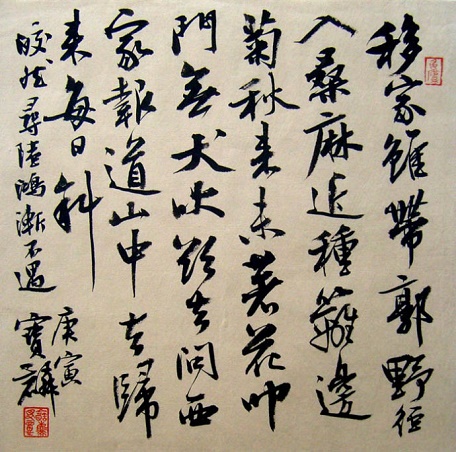 移家雖帶郭野徑
入桑麻近種籬邊
菊秋來未著花叩
門無犬吠欲去問西
家報道山中去歸
來每日斜
皎然尋陸鴻漸不遇
庚寅
寶麟